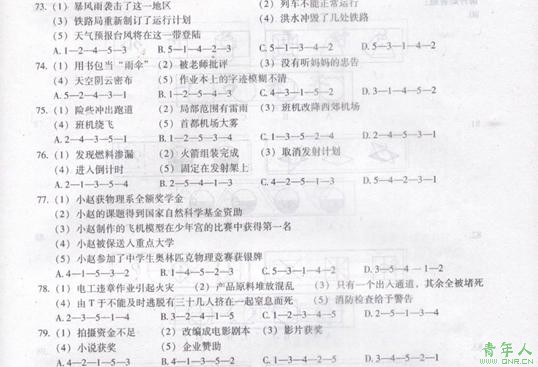 73.(1) 暴风雨袭击了这一地区 (2) 列车不能正常运行
(3) 铁路局重新制订了运行计划 (4) 洪水冲毁了几处铁路
(5) 天气预报台风将在这一带登陆
A.1—2—4—5—3 B.5—1—4—2—3
74.(1) 用书包当“雨伞” (2) 被老师批评 (3) 没有听妈妈的忠告
(4) 天空阴云密布 (5) 作业本上的字迹模糊不清
B.1—2—5—4—3 C.4—3—1—5—2 D.3—1—4—5—2
75.(1) 险些冲出跑道 (2) 局部范围有雷雨 (3) 班机改降西郊机场
(4) 班机绕飞 (5) 首都机场大雾
A.2—4—3—5—1 B.1—2—5—3—4 C.4—3—5—2—4 D.2—4—5—3—1
76.(1) 发现燃料渗漏 (2) 火箭组装完成 (3) 取消发射计划
(4) 进入倒计时 (5) 固定在发射架上
A.2—1—3—5—4 B.2—5—4—1—3 C.4—2—5—1—3 D.5—4—2—3—1
77.(1) 小赵获物理系全额奖学金
(2) 小赵的课题得到国家自然科学基金资助
(3) 小赵制作的飞机模型在少年宫的比赛中获得第一名
(4) 小赵被保送入重点大学
(5) 小赵参加了中学生奥林匹克物理竞赛获银牌
A.4—1—5—3—2 B.1—4—5—2—3 C.5—4—3—1—2 D.3—5—4—1—2
78.(1) 电工违章作业引起火灾 (2) 产品原料堆放混乱 (3) 只有一个出入通道,其余全被堵死
(4) 由T于不能及时逃脱有三十几人挤在一起窒息而死 (5) 消防检查给予警告
A.2—3—5—1—4 B.3—2—4—1—5 C.1—2—3—4—5 D.5—4—1—3—2
79.(1) 拍摄资金不足 (2) 改编成电影剧本 (3) 影片获奖
(4) 小说获奖 (5) 企业赞助
A.4—2—1—5—3 B.4—1—3—5—2 C.1—3—4—2—5 D.3—4—5—2—1
青年人
www.QNR.cn